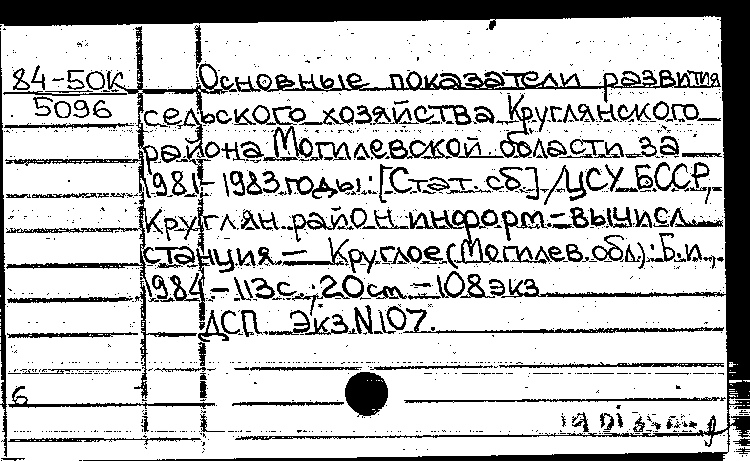 84-50К Основные показатели развития
5096 сельского хозяйства Круглянского
района Могилевской области за
1981-1983 годы: [Стат. сб] / ЦСУ БССР,
Круглян. район информ=вычисл.
станция — Круглое (Могилев. обл.): Б.и.,
1984 - 113с.; 20см - 108 экз
ДСП Экз.N107.
6